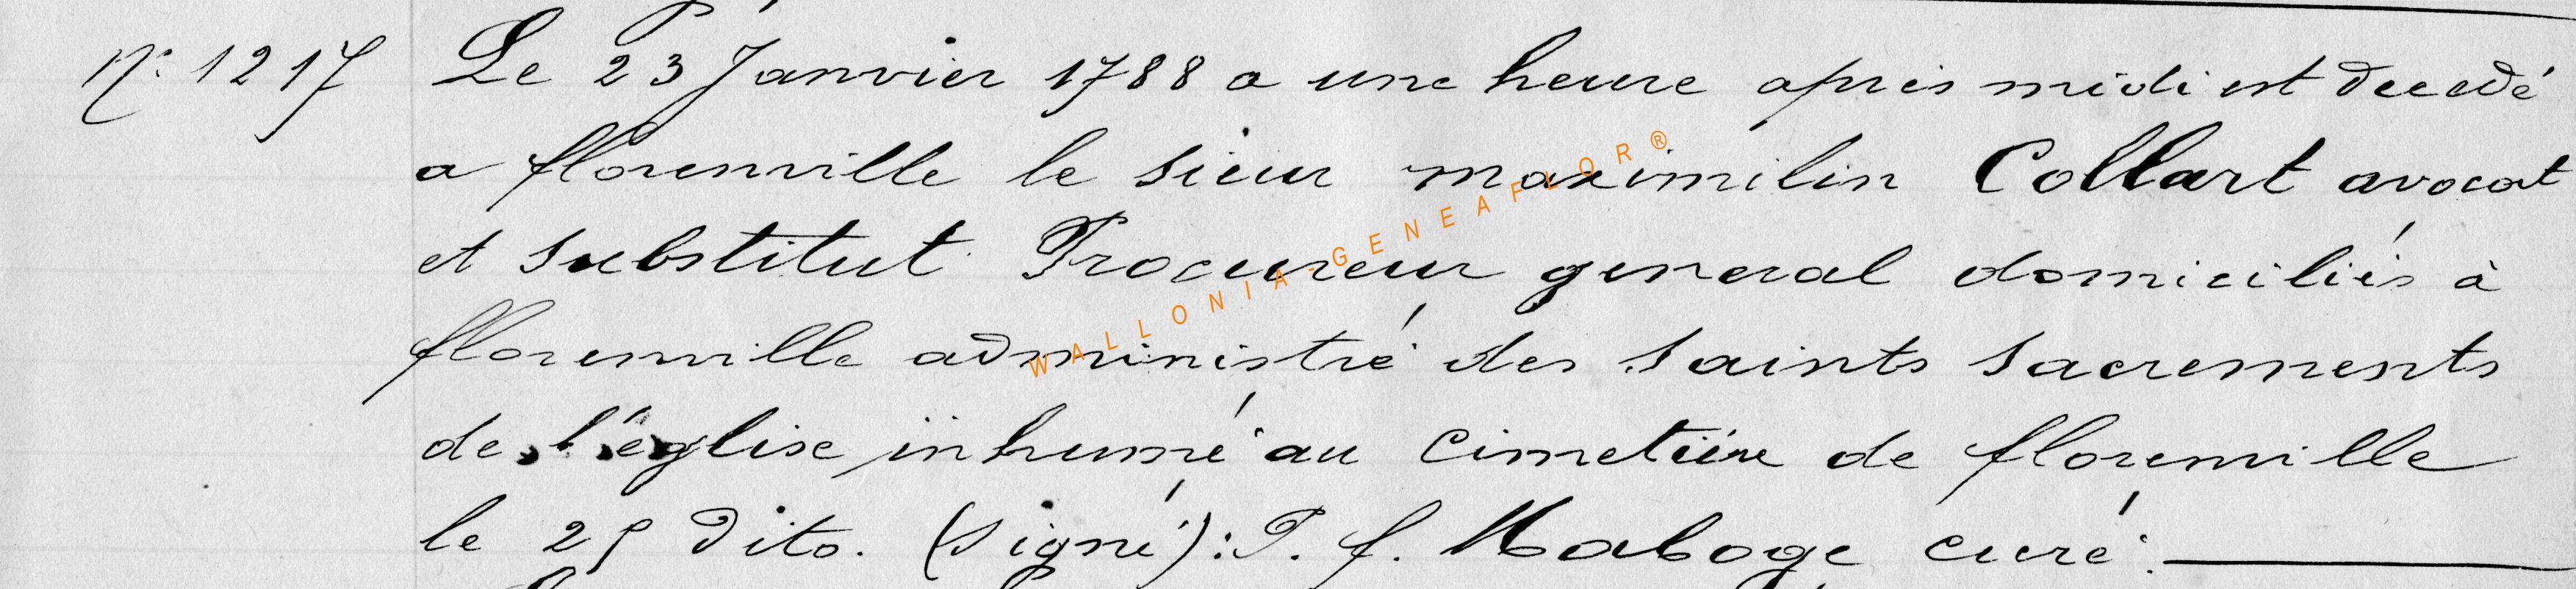 N° 1217 Le 23 Janvier 1788 a une heure apres midi est decedé
a florenville le sieur maximilin Collart avocat
et substitut Procureur general domiciliés à
florenville administré des saints sacrements
de l'église inhumé au cimetière de florenville
le 25 dito. (signé): P. f. Maboge curé.
WALLONIA-GENEAFLOR®